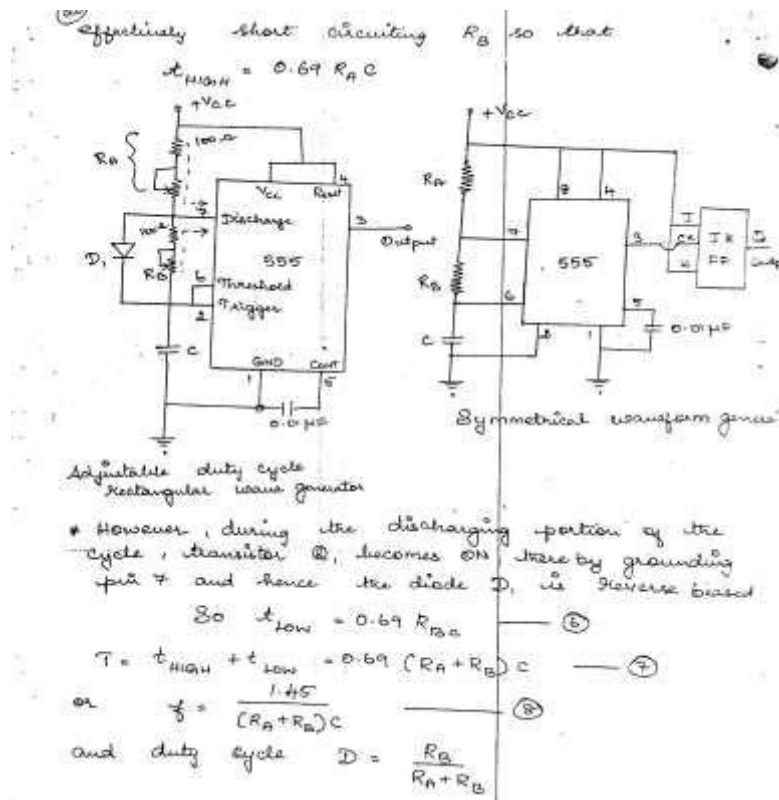 effectively short circuiting R_B so that
t_HIGH = 0.69 R_A C
+Vcc
100Ω
R_A
D1
Vcc
Reset
4
Discharge
100Ω
R_B
555
3
Output
6
Threshold
2
Trigger
C
GND
Cont
1
5
0.01μF
Adjustable duty cycle
Rectangular wave generator
+Vcc
R_A
8
4
7
555
3
J
K
JK
FF
R_B
6
5
C
2
1
0.01μF
Symmetrical waveform gener
* However, during the discharging portion of the
cycle, transistor Q1 becomes ON there by grounding
pin 7 and hence the diode D1 is Reverse biased
So t_LOW = 0.69 R_BC — ⑥
T = t_HIGH + t_LOW = 0.69 (R_A + R_B) C — ⑦
or f = 1.45 / (R_A + R_B) C — ⑧
and duty cycle D = R_B / R_A + R_B